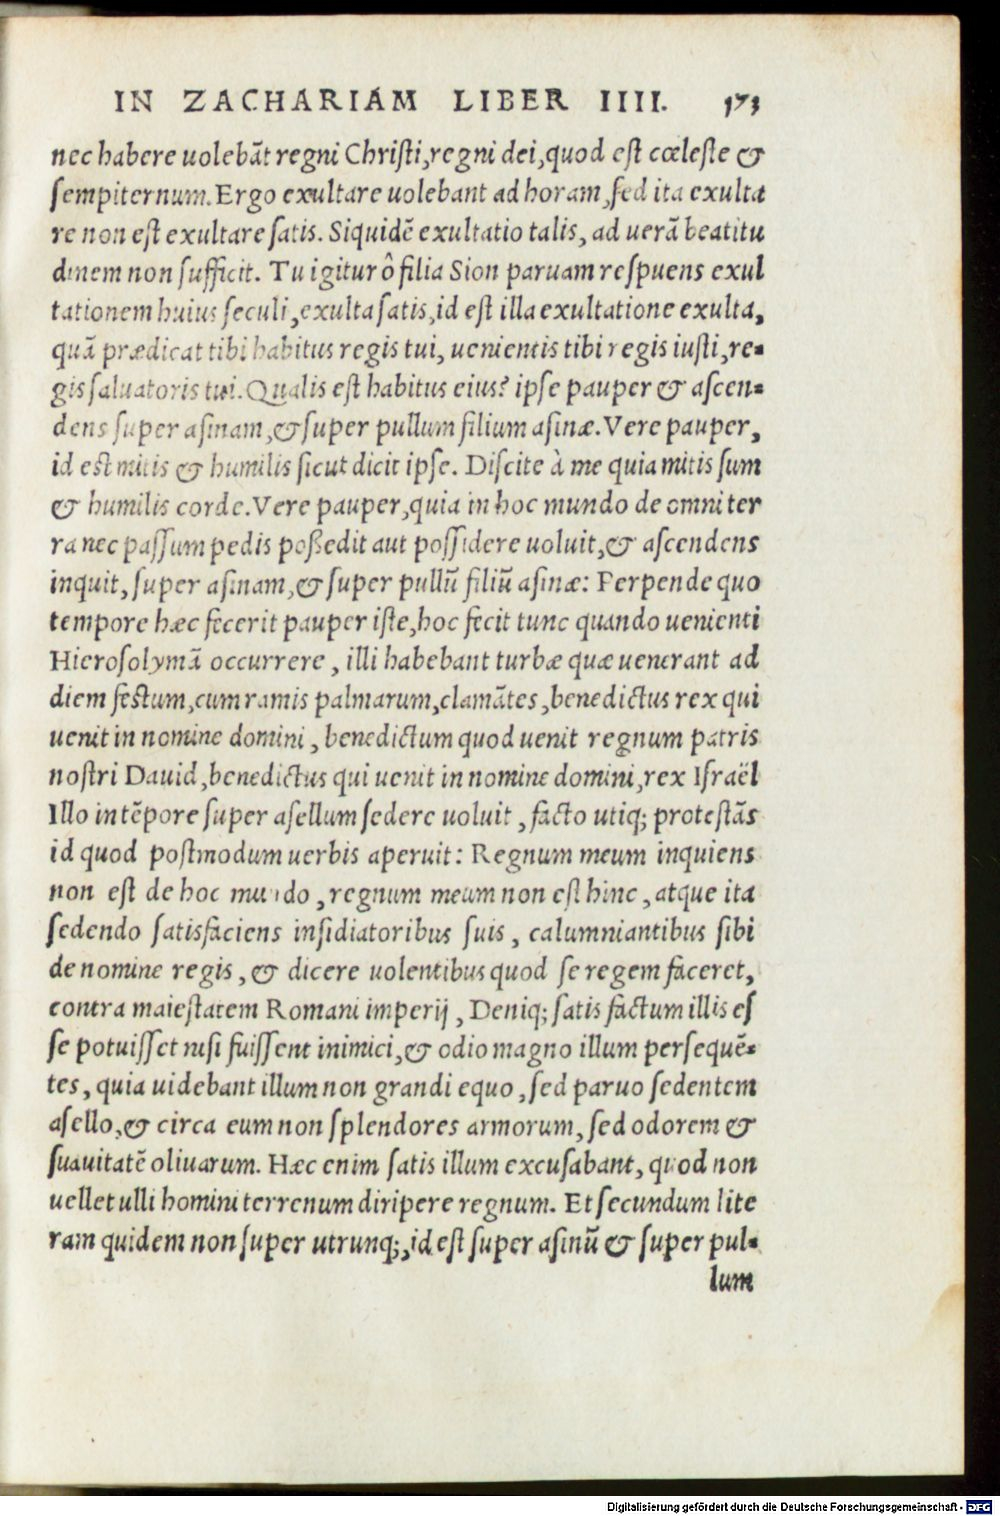 IN ZACHARIAM LIBER IIII. 173
nec habere uolebãt regni Christi, regni dei, quod est cœleste &
sempiternum. Ergo exultare uolebant ad horam, sed ita exulta
re non est exultare satis. Siquidẽ exultatio talis, ad uerã beatitu
dinem non sufficit. Tu igitur ô filia Sion paruam respuens exul
tationem huius seculi, exulta satis, id est illa exultatione exulta,
quã prædicat tibi habitus regis tui, uenientis tibi regis iusti, re-
gis saluatoris tui. Qualis est habitus eius? ipse pauper & ascen-
dens super asinam, & super pullum filium asinæ. Vere pauper,
id est mitis & humilis sicut dicit ipse. Discite à me quia mitis sum
& humilis corde. Vere pauper, quia in hoc mundo de omni ter
ra nec passum pedis poßedit aut possidere uoluit, & ascendens
inquit, super asinam, & super pullũ filiũ asinæ: Perpende quo
tempore hæc fecerit pauper iste, hoc fecit tunc quando uenienti
Hierosolymã occurrere, illi habebant turbæ quæ uenerant ad
diem festum, cum ramis palmarum, clamãtes, benedictus rex qui
uenit in nomine domini, benedictum quod uenit regnum patris
nostri Dauid, benedictus qui uenit in nomine domini, rex Israël
Illo in tẽpore super asellum sedere uoluit, facto utiq; protestãs
id quod postmodum uerbis aperuit: Regnum meum inquiens
non est de hoc mundo, regnum meum non est hinc, atque ita
sedendo satisfaciens insidiatoribus suis, calumniantibus sibi
de nomine regis, & dicere uolentibus quod se regem faceret,
contra maiestatem Romani imperij, Deniq; satis factum illis es
se potuisset nisi fuissent inimici, & odio magno illum persequẽ-
tes, quia uidebant illum non grandi equo, sed paruo sedentem
asello, & circa eum non splendores armorum, sed odorem &
suauitatẽ oliuarum. Hæc enim satis illum excusabant, quod non
uellet ulli homini terrenum diripere regnum. Et secundum lite
ram quidem non super utrunq;, id est super asinũ & super pul-
lum
Digitalisierung gefördert durch die Deutsche Forschungsgemeinschaft - DFG